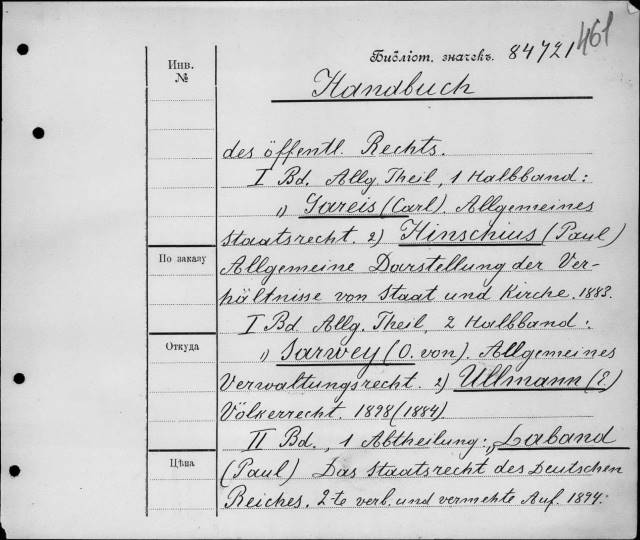 461
Библіот. значекъ. 84721
Инв.
№
Handbuch
des öffentl. Rechts.
I Bd. Allg. Theil, 1 Halbband:
1) Gareis (Carl). Allgemeines
Staatsrecht. 2) Hinschius (Paul)
По заказу
Allgemeine Darstellung der Ver-
hältnisse von Staat und Kirche. 1883.
I Bd. Allg. Theil, 2 Halbband:
Откуда
1) Sarwey (O. von). Allgemeines
Verwaltungsrecht. 2) Ullmann (E.)
Völkerrecht. 1898 (1884)
II Bd., 1 Abtheilung: 1) Laband
Цѣна
(Paul) Das Staatsrecht des Deutschen
Reiches. 2-te verb. und vermehte Auf. 1894.